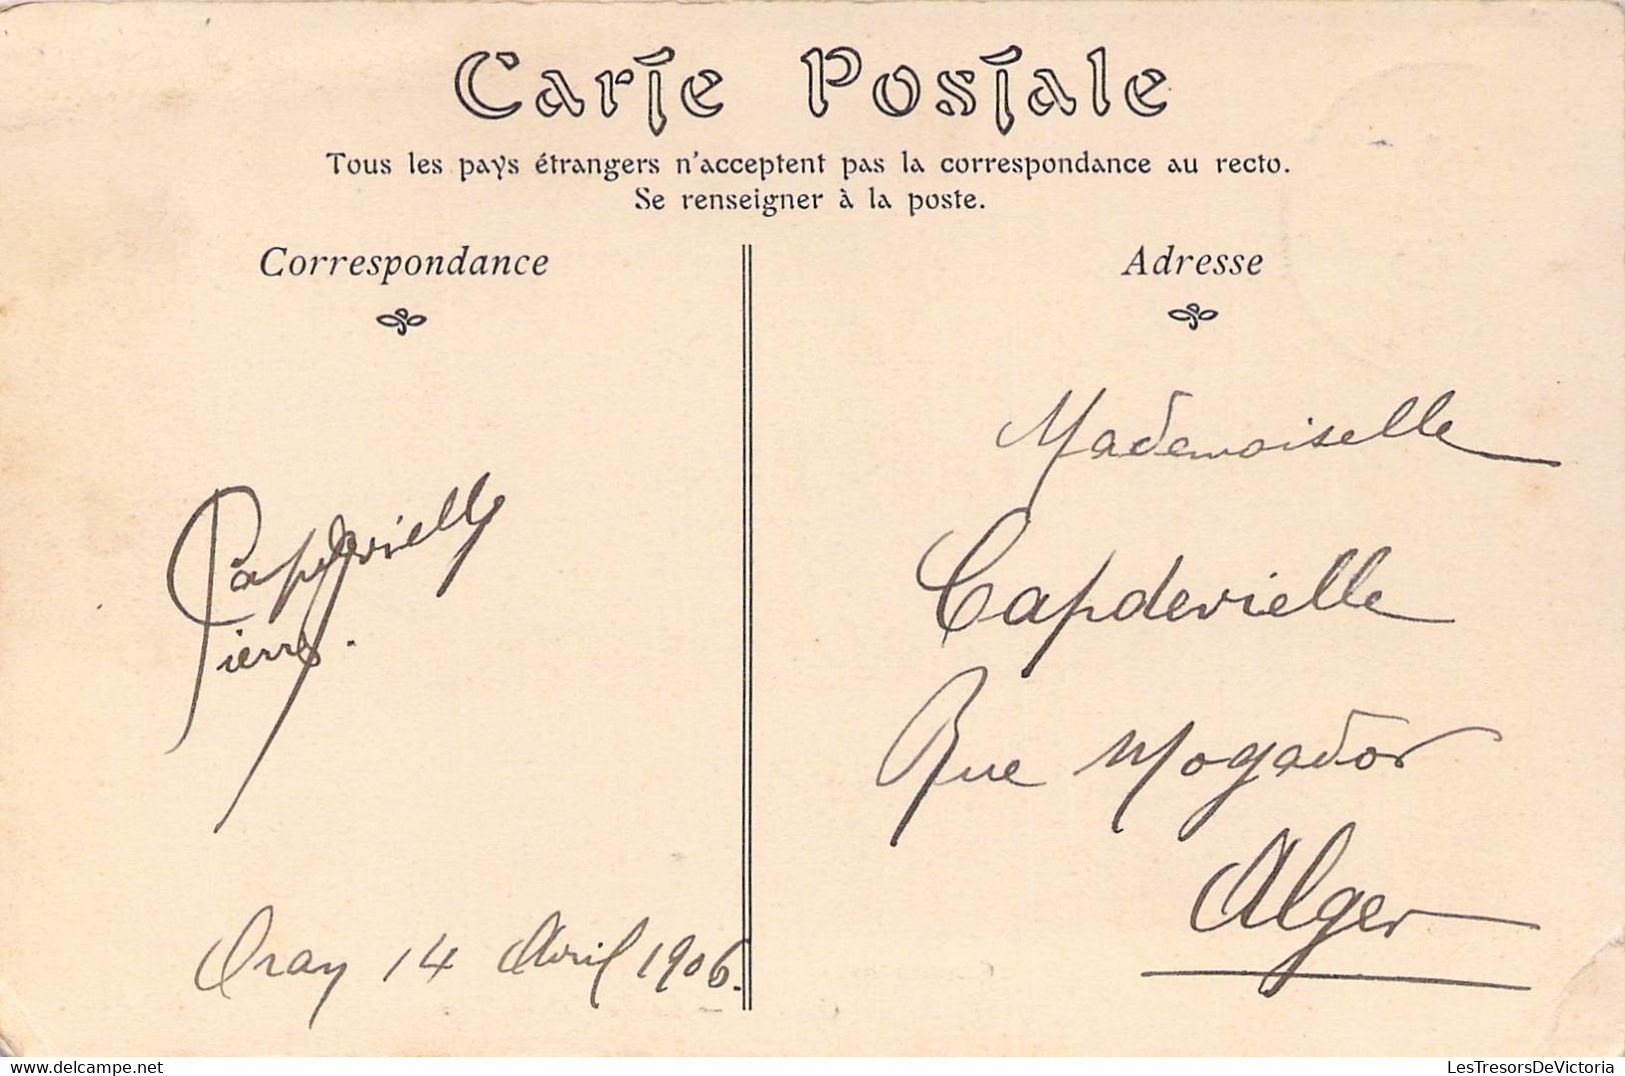 Carte Postale
Tous les pays étrangers n'acceptent pas la correspondance au recto.
Se renseigner à la poste.
Correspondance
Capdevielle
Pierre.
Oran 14 Avril 1906.
Adresse
Mademoiselle
Capdevielle
Rue Mogador
Alger
LesTresorsDeVictoria